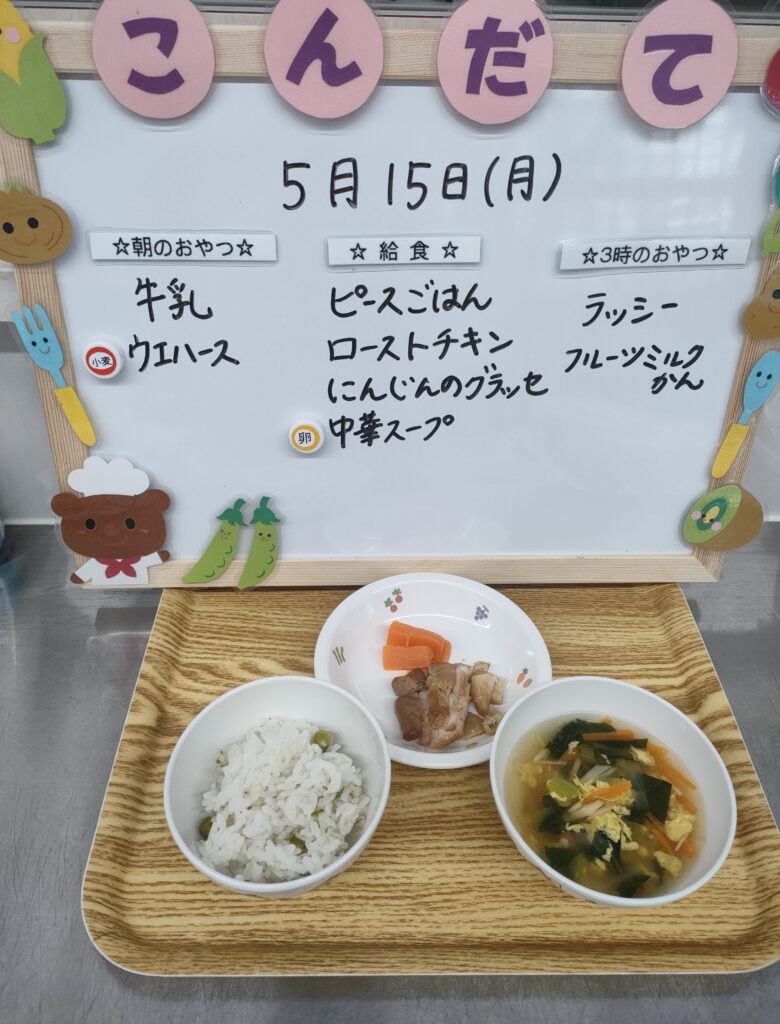 こんだて
5月15日(月)
☆朝のおやつ☆
牛乳
小麦 ウエハース
☆ 給 食 ☆
ピースごはん
ローストチキン
にんじんのグラッセ
卵 中華スープ
☆3時のおやつ☆
ラッシー
フルーツミルク
かん